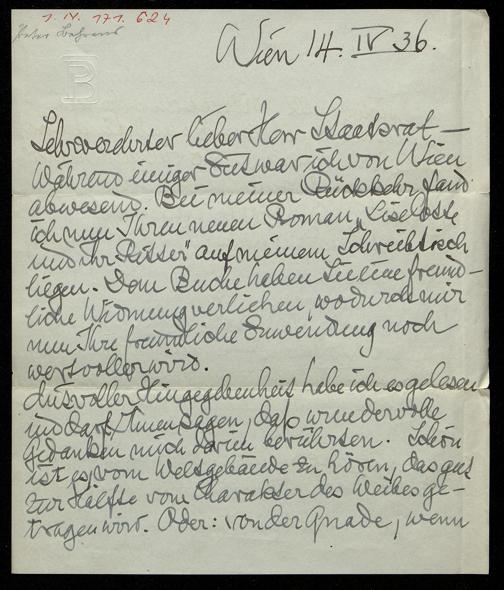 1. IV. 171. 624
Peter Behrens
B
Wien 14. IV 36.
Sehrverehrter lieber Herr Staatsrat —
Während einiger Zeit war ich von Wien
abwesend. Bei meiner Rückkehr fand
ich nun Ihren neuen Roman „Liselotte
und ihr Ritter" auf meinem Schreibtisch
liegen. Dem Buche haben Sie eine freund-
liche Widmung verliehen, wodurch mir
nun Ihre freundliche Zuwendung noch
wertvoller wird.
Aus voller Hingegebenheit habe ich es gelesen
und darf Ihnen sagen, daß wundervolle
Gedanken mich darin berührten. Schön
ist es, vom Weltgebäude zu hören, das gut
zur Hälfte vom Charakter des Weibes ge-
tragen wird. Oder: von der Gnade, wenn